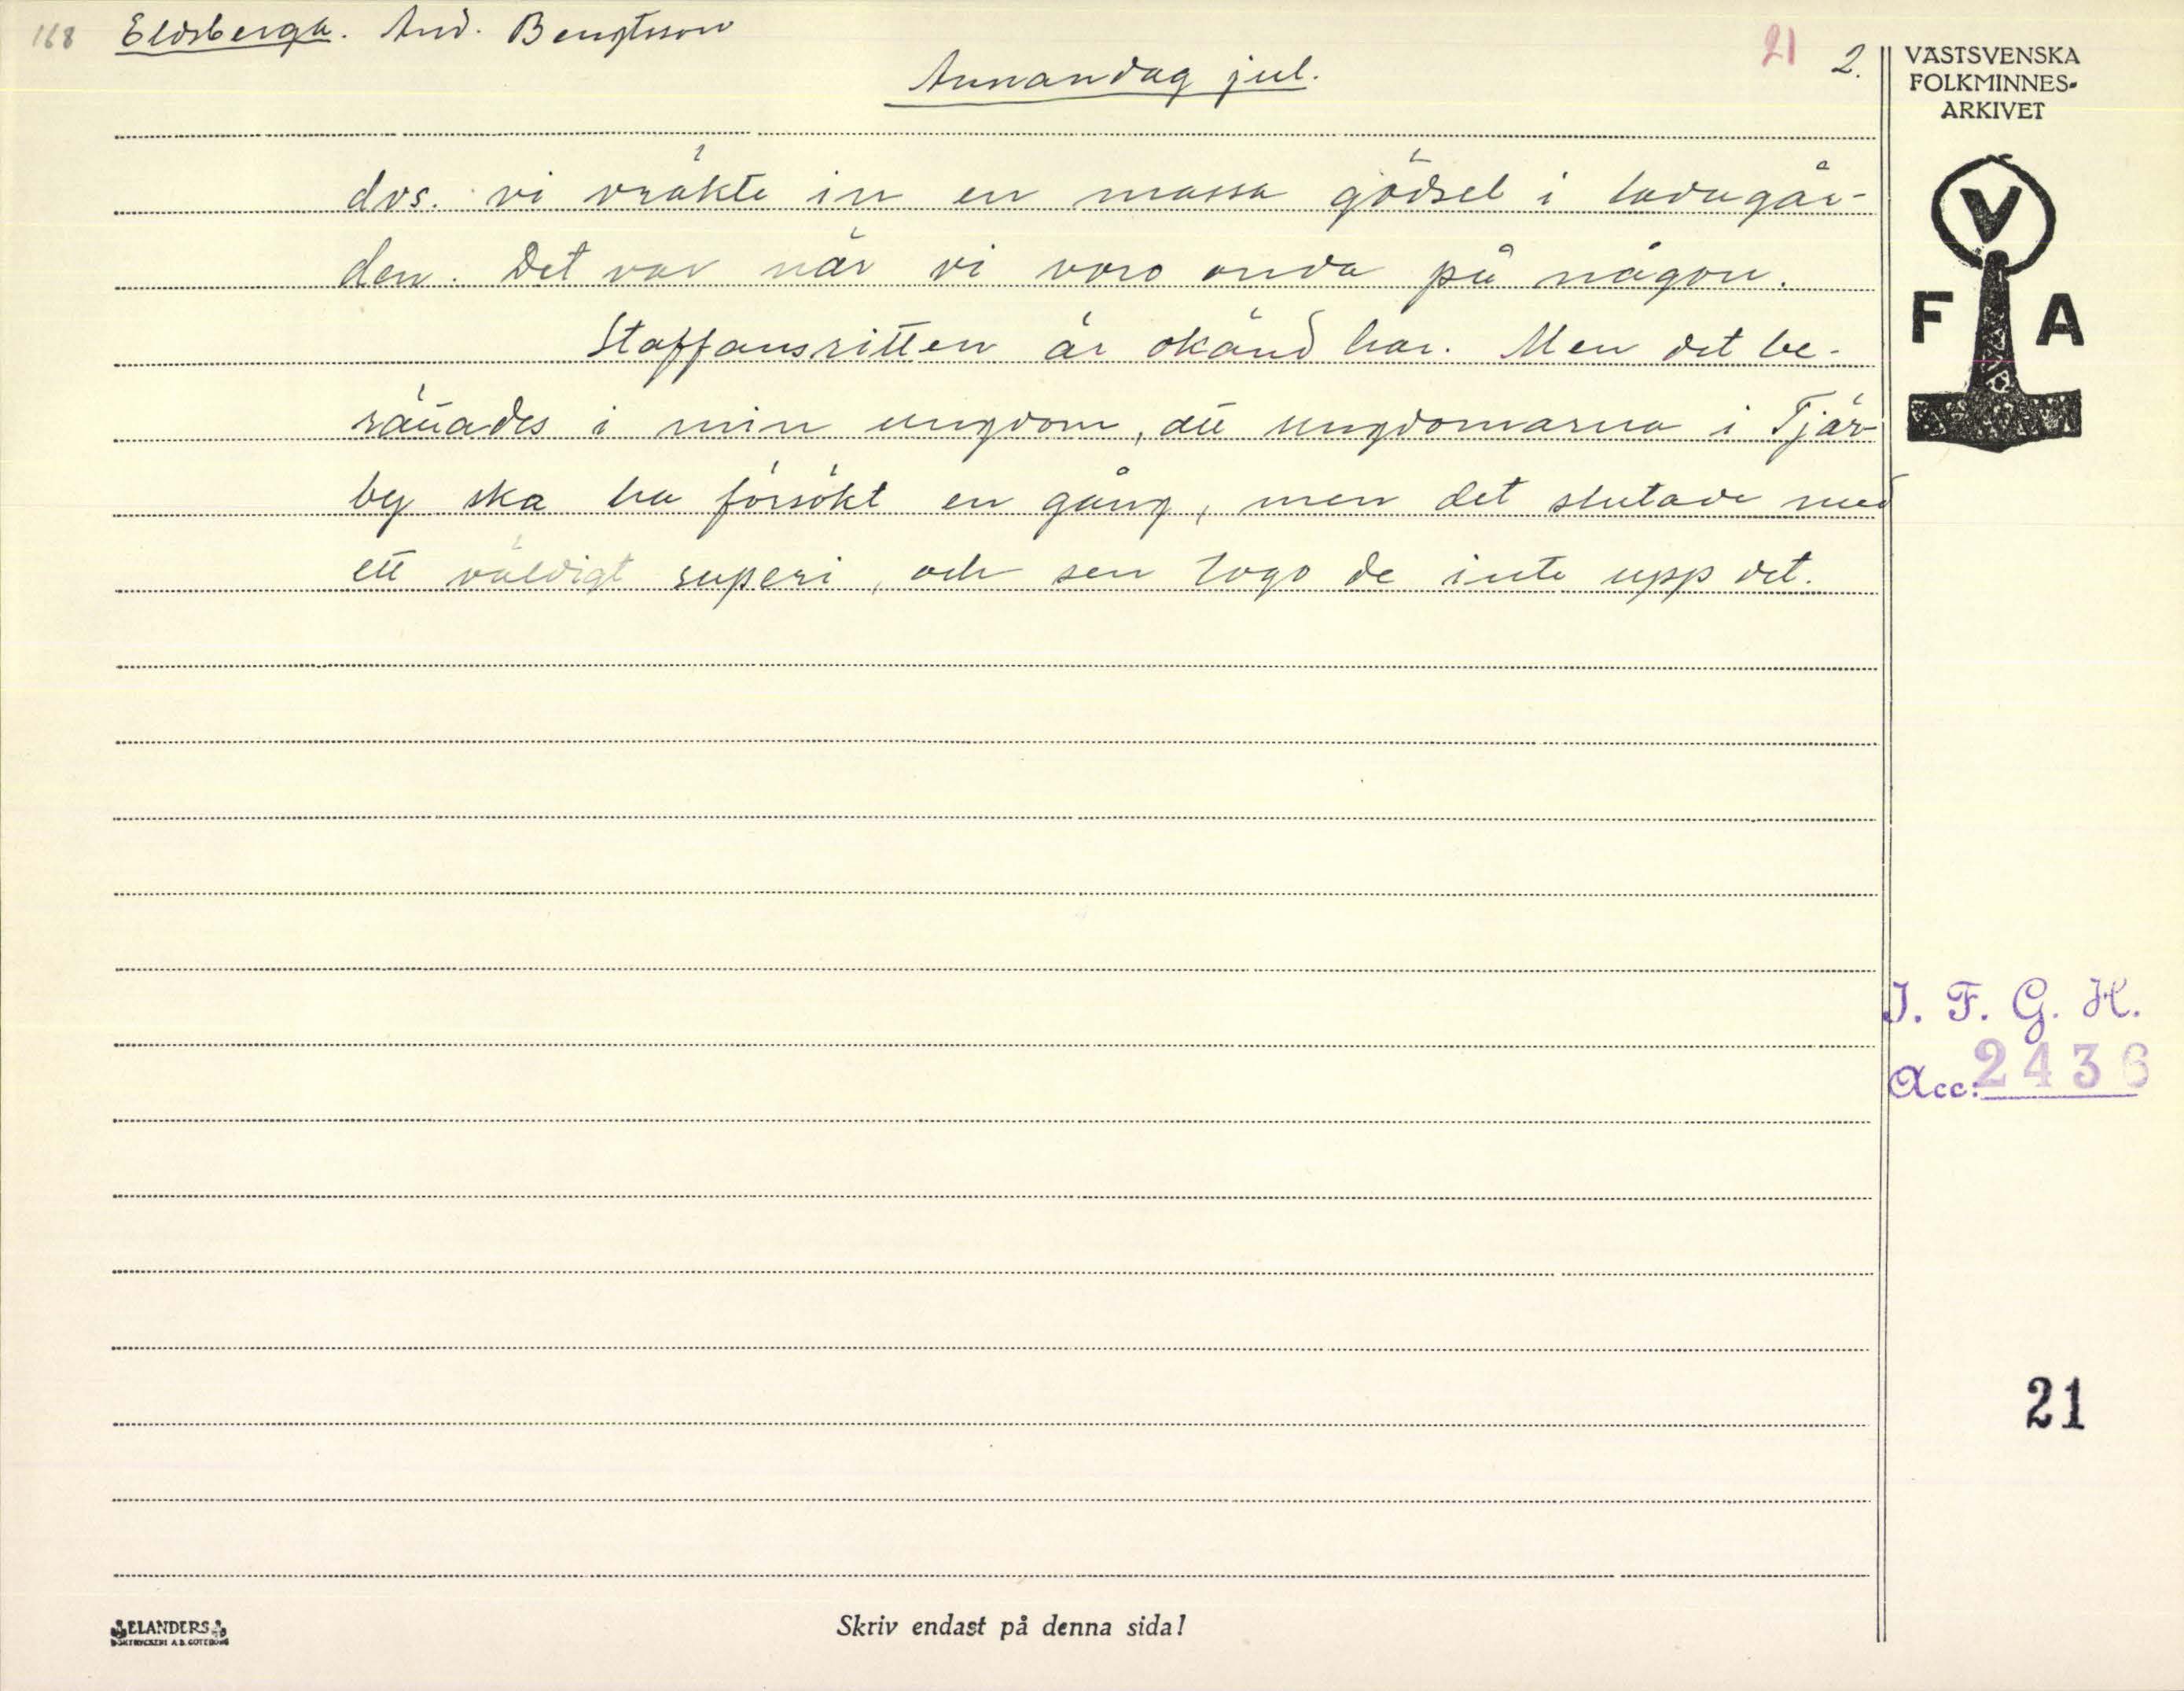 168 Eldsberga. And. Bengtsson
21 2.
Annandag jul.
VÄSTSVENSKA
FOLKMINNES-
ARKIVET
V
F A
dvs. vi vräkte in en massa gödsel i ladugår-
den. Det var när vi voro onda på någon.
Staffansritten är okänd här. Men det be-
rättades i min ungdom, att ungdomarna i Tjär-
by ska ha försökt en gång, men det slutade med
ett väldigt superi, och sen togo de inte upp det.
I. F. G. H.
Acc: 2436
21
ELANDERS
BOKTRYCKERI A.B. GÖTEBORG
Skriv endast på denna sida!